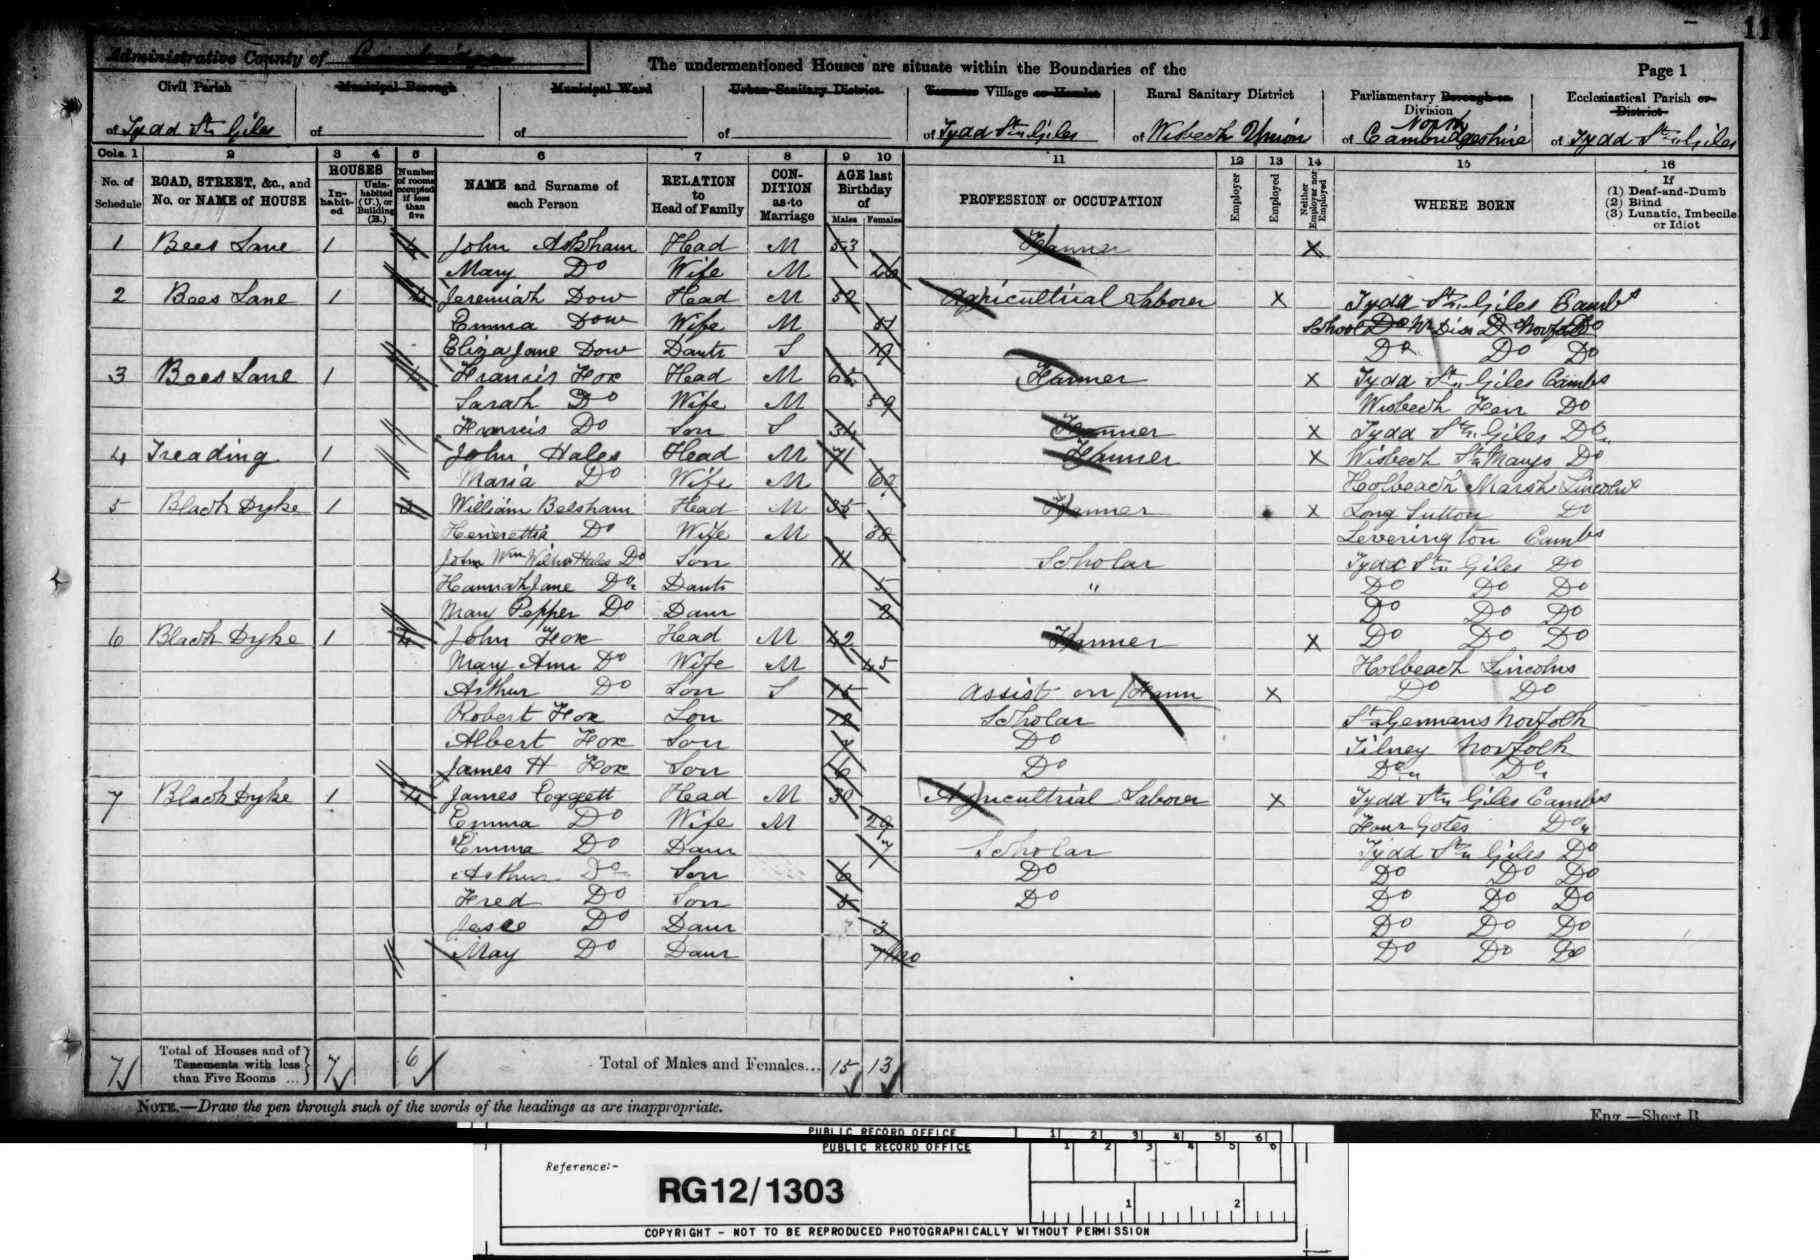 11
Administrative County of
The undermentioned Houses are situate within the Boundaries of the
Page 1
Civil Parish
Municipal Borough
Municipal Ward
Urban Sanitary District
Town or Village or Hamlet
Rural Sanitary District
Parliamentary Borough or Division
Ecclesiastical Parish or District
of Tydd St. Giles
of
of
of
of Tydd St. Giles
of Wisbech Union
of North Cambridgeshire
of Tydd St. Giles
Cols. 1 2 3 4 5 6 7 8 9 10 11 12 13 14 15 16
No. of Schedule
ROAD, STREET, &c., and No. or NAME of HOUSE
HOUSES
In-habit-ed
Unin-habited (U.), or Building (B.)
Number of rooms occupied if less than five
NAME and Surname of each Person
RELATION to Head of Family
CON-DITION as to Marriage
AGE last Birthday of
Males Females
PROFESSION or OCCUPATION
Employer
Employed
Neither Employer nor Employed
WHERE BORN
If
(1) Deaf-and-Dumb
(2) Blind
(3) Lunatic, Imbecile or Idiot
1 Bees Lane 1 4 John Askham Head M 53 Farmer X
Mary Do Wife M
2 Bees Lane 1 4 Jeremiah Dow Head M 52 Agricultrial Laborer X Tydd St. Giles Cambs
Emma Dow Wife M 51 Norfolk
Eliza Jane Dow Daut S 19 Do Do Do
3 Bees Lane 1 4 Francis Fox Head M 65 Farmer X Tydd St. Giles Cambs
Sarah Do Wife M 59 Wisbech Fen Do
Francis Do Son S 34 Farmer X Tydd St. Giles Do
4 Treading 1 John Hales Head M 71 Farmer X Wisbech St. Marys Do
Maria Do Wife M 62 Holbeach Marsh Lincolns
5 Black Dyke 1 3 William Belsham Head M 35 Farmer X Long Sutton Do
Do Wife M 38 Leverington Cambs
John Wm Hales Do Son 11 Scholar Tydd St. Giles Do
Hannah Jane Do Daut 5 " Do Do Do
Mary Pepper Do Daur 2 Do Do Do
6 Black Dyke 1 4 John Fox Head M 42 Farmer X Do Do Do
Mary Ann Do Wife M 45 Holbeach Lincolns
Arthur Do Son S 15 Assist on Farm X Do Do
Robert Fox Son 12 Scholar St. Germans Norfolk
Albert Fox Son 7 Do Tilney Norfolk
James H Fox Son 6 Do Do Do
7 Black Dyke 1 4 James Coggett Head M 30 Agricultrial Laborer X Tydd St. Giles Cambs
Emma Do Wife M 29 Four Gotes Do
Emma Do Daur 7 Scholar Tydd St. Giles Do
Arthur Do Son 6 Do Do Do Do
Fred Do Son 5 Do Do Do Do
Do Daur 3 Do Do Do
May Do Daur 7 Mo Do Do Do
7 Total of Houses and of Tenements with less than Five Rooms ... 7 6 Total of Males and Females... 15 13
NOTE.—Draw the pen through such of the words of the headings as are inappropriate.
Eng.—Sheet B
PUBLIC RECORD OFFICE
1 2 3 4 5 6
PUBLIC RECORD OFFICE
1 2 3 4 5 6
Reference:-
RG12/1303
1 2
COPYRIGHT - NOT TO BE REPRODUCED PHOTOGRAPHICALLY WITHOUT PERMISSION